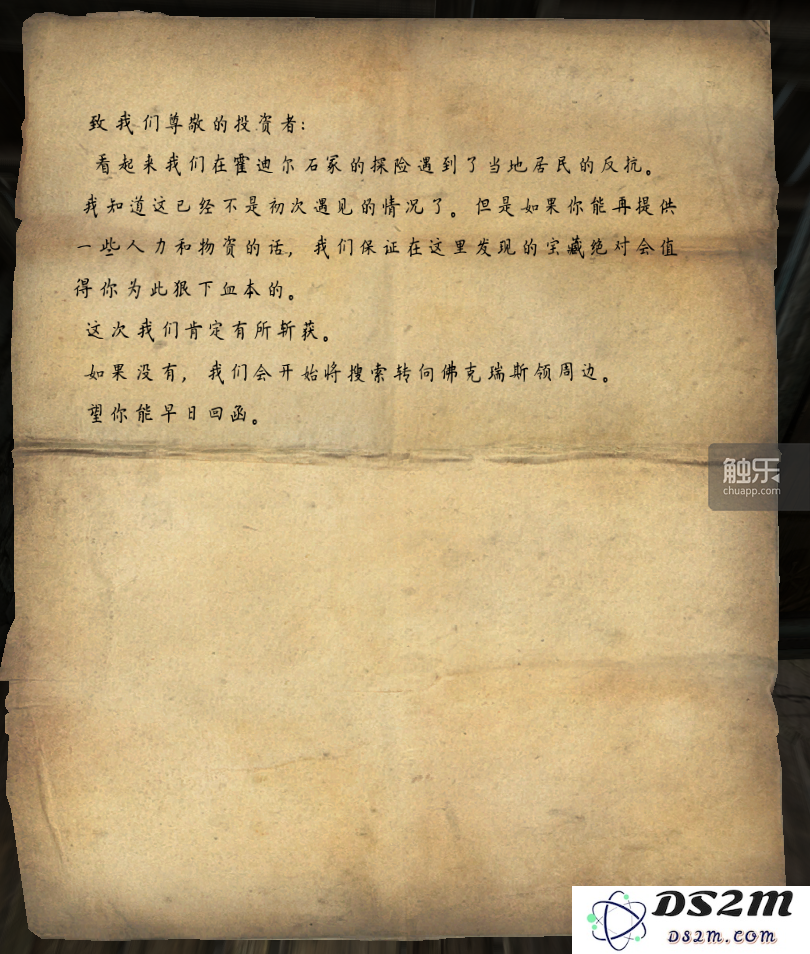 致我们尊敬的投资者：
看起来我们在霍迪尔石冢的探险遇到了当地居民的反抗。
我知道这已经不是初次遇见的情况了。但是如果你能再提供
一些人力和物资的话，我们保证在这里发现的宝藏绝对会值
得你为此狠下血本的。
这次我们肯定有所斩获。
如果没有，我们会开始将搜索转向佛克瑞斯领周边。
望你能早日回函。
触乐
chuapp.com
DS2M
ds2m.com